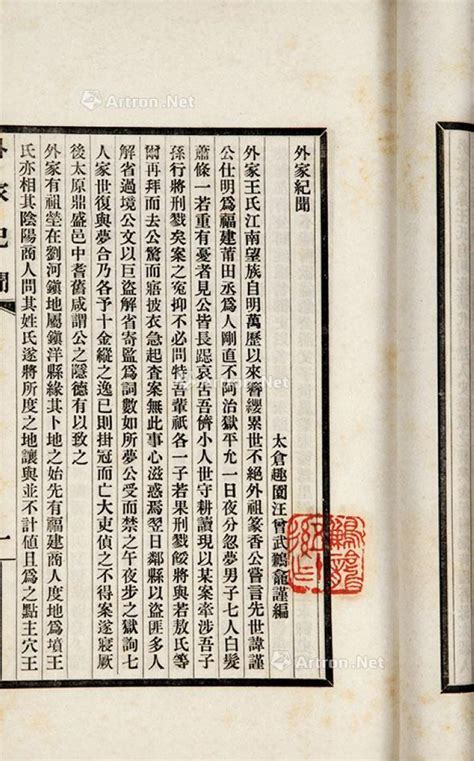 外家紀聞
太倉趣園汪曾武鶴龕謹編
外家王氏江南望族自明萬歷以來簪纓累世不絕外祖篆香公嘗言先世諱謹
公仕明爲福建莆田丞爲人剛直不阿治獄平允一日夜分忽夢男子七人白髮
蕭條一若重有憂者見公皆長跽哀告吾儕小人世守耕讀現以某案牽涉吾子
孫行將刑戮矣案之寃抑不必問特吾輩祇各一子若果刑戮餒將與若敖氏等
爾再拜而去公驚而寤披衣急起查案無此事心滋惑焉翌日鄰縣以盜匪多人
解省過境公文以巨盜解省寄監爲詞數如所夢公受而禁之午夜步之獄詢七
人家世復與夢合乃各予十金縱之逸已則掛冠而亡大吏偵之不得案遂寢厥
後太原鼎盛邑中耆舊咸謂公之隱德有以致之
外家有祖塋在劉河鎭地屬鎭洋縣緣其卜地之始先有福建商人度地爲墳王
氏亦相其陰陽商人問其姓氏遂將所度之地讓與並不計値且爲之點主穴王
外家紀聞
一
Artron.Net
Artron.Net
Artron.Net